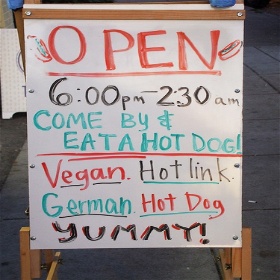 OPEN
6:00pm-2:30am
COME BY &
EAT A HOT DOG!
Vegan. Hot link.
German. Hot Dog
YUMMY!